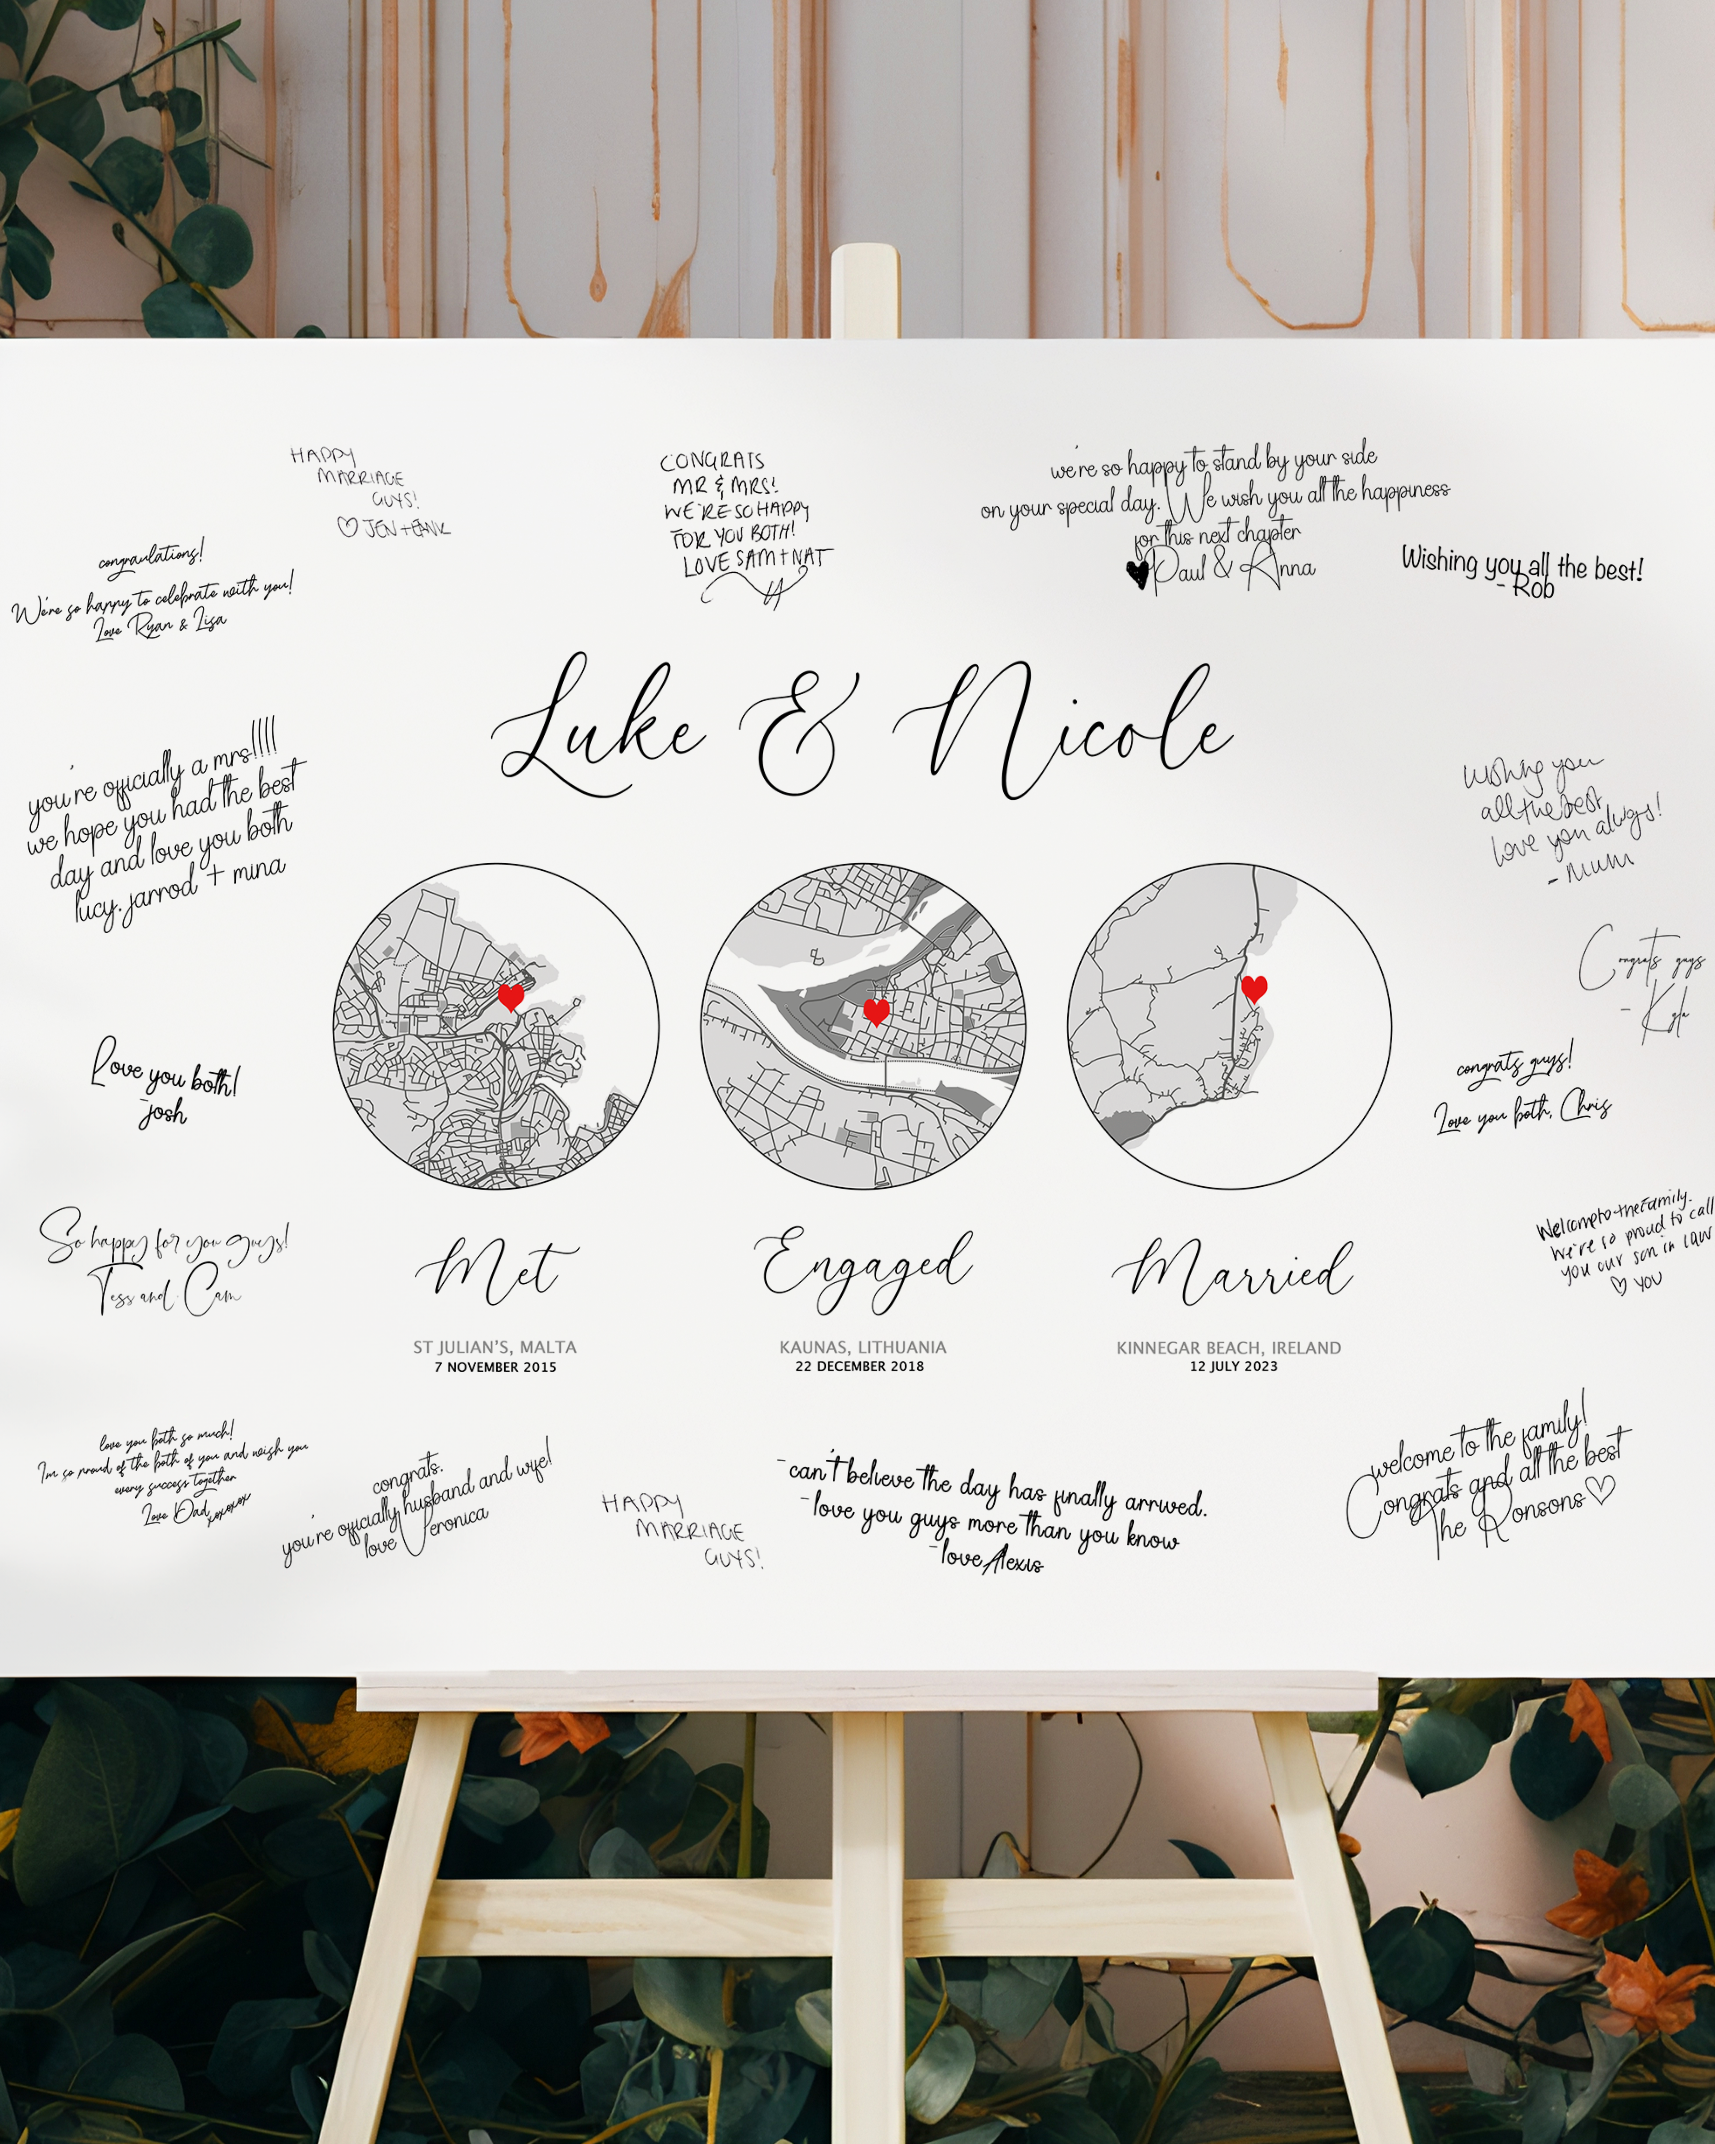 HAPPY
MARRIAGE
GUYS!
♡ JEN +
CONGRATS
MR & MRS!
WE'RE SO HAPPY
FOR YOU BOTH!
LOVE SAM + NAT
we're so happy to stand by your side
on your special day. We wish you all the happiness
for this next chapter
♥ Paul & Anna
Wishing you all the best!
- Rob
congraulations!
We're so happy to celebrate with you!
Love Ryan & Lisa
Luke & Nicole
you're officially a mrs!!!!
we hope you had the best
day and love you both
lucy. jarrod + mina
wishing you
all the best
love you always!
- mum
Congrats guys
- Kyla
Love you both!
-josh
congrats guys!
Love you both, Chris
So happy for you guys!
Tess and Cam
Welcome to the family.
we're so proud to call
you our son in law
♡ you
Met
ST JULIAN'S, MALTA
7 NOVEMBER 2015
Engaged
KAUNAS, LITHUANIA
22 DECEMBER 2018
Married
KINNEGAR BEACH, IRELAND
12 JULY 2023
love you both so much!
I'm so proud of the both of you and wish you
every success together
Love Dad xoxoxox
congrats.
you're officially husband and wife!
love Veronica
HAPPY
MARRIAGE
GUYS!
-can't believe the day has finally arrived.
-love you guys more than you know
-love Alexis
welcome to the family!
Congrats and all the best
The Ronsons ♡